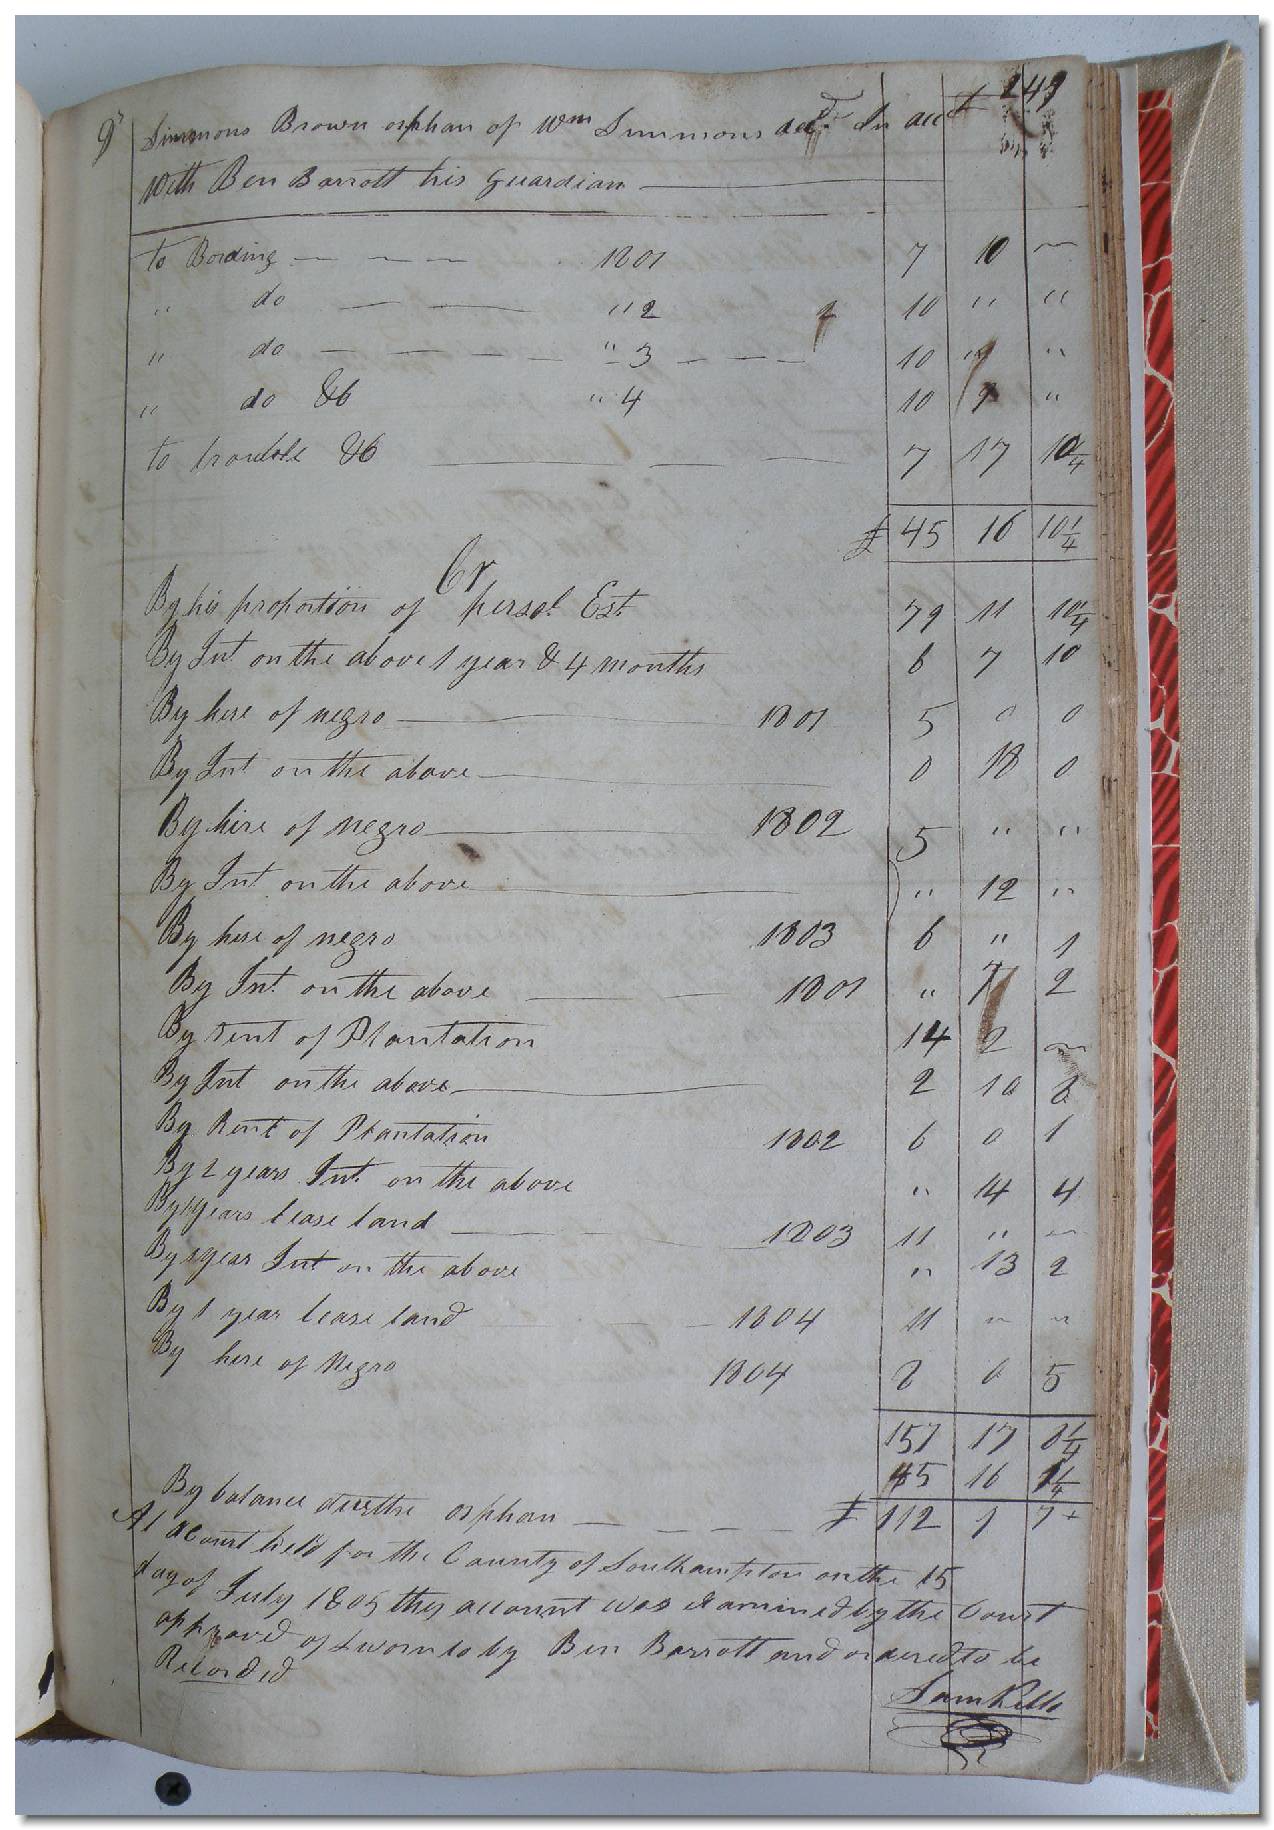 249
Simmons Brown orphan of Wm Simmons decd. In acct
With Ben Barrott his Guardian
to Bording 1801 7 10 "
" do " 2 10 " "
" do " 3 10 " "
" do &c " 4 10 9 "
to trouble &c 7 17 10 1/4
£ 45 16 10 1/4
Cr
By his proportion of persol. Est. 79 11 10 1/4
By Int. on the above 1 year & 4 months 6 7 10
By here of negro 1801 5 0 0
By Int on the above 0 18 0
By hire of negro 1802 5 " "
By Int on the above " 12 "
By here of negro 1803 6 " 1
By Int. on the above 1801 " 7 2
By rent of Plantation 14 2 "
By Int on the above 2 10 8
By Rent of Plantation 1802 6 0 1
By 2 years Int. on the above " 14 4
By 1 years lease land 1803 11 " "
By 1 year Int on the above " 13 2
By 1 year lease land 1804 11 " "
By here of Negro 1804 8 0 5
157 17 8 1/4
45 16 1/4
By balance due the orphan £ 112 1 7
At a Court held for the County of Southampton on the 15
day of July 1805 this account was Examined by the Court
approved of & sworn to by Ben Barrott and ordered to be
Recorded
Sam Kello